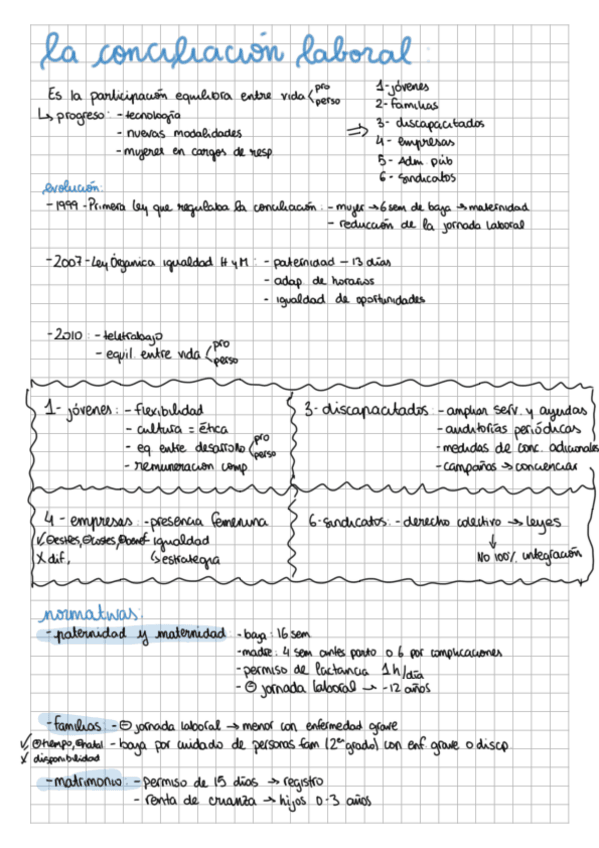 la conciliación laboral:
Es la participación equilibra entre vida < pro
perso
↳ progreso: - tecnología
- nuevas modalidades
- mujeres en cargos de resp
⇒
1- jóvenes
2- familias
3- discapacitados
4- empresas
5- Adm. púb
6- sindicatos
evolución:
- 1999 - Primera ley que regulaba la conciliación: - mujer → 6 sem de baja → maternidad
- reducción de la jornada laboral
- 2007 - Ley Órganica igualdad H y M: - paternidad - 13 días
- adap de horarios
- igualdad de oportunidades
- 2010: - teletrabajo
- equil. entre vida < pro
perso
1- jóvenes: - flexibilidad
- cultura = Ética
- eq entre desarrollo < pro
perso
- remuneración comp
3- discapacitados: - ampliar serv. y ayudas
- auditorías periódicas
- medidas de conc. adicionales
- campañas → concienciar
4 - empresas: - presencia femenina
✓ ⊖estrés, ⊖costes, ⊕benef igualdad
X dif, ↳ estrategia
6- sindicatos: - derecho colectivo → leyes
↓
No 100% integración
normativas:
- paternidad y maternidad: - baja: 16 sem
- madre: 4 sem antes parto o 6 por complicaciones
- permiso de lactancia 1h/día
- ⊖ jornada laboral → -12 años
- familias - ⊖ jornada laboral → menor con enfermedad grave
✓ ⊕tiempo, ⊕natal - baja por cuidado de personas fam (2º grado) con enf. grave o discp
X disponibilidad
- matrimonio: - permiso de 15 días → registro
- renta de crianza → hijos 0-3 años